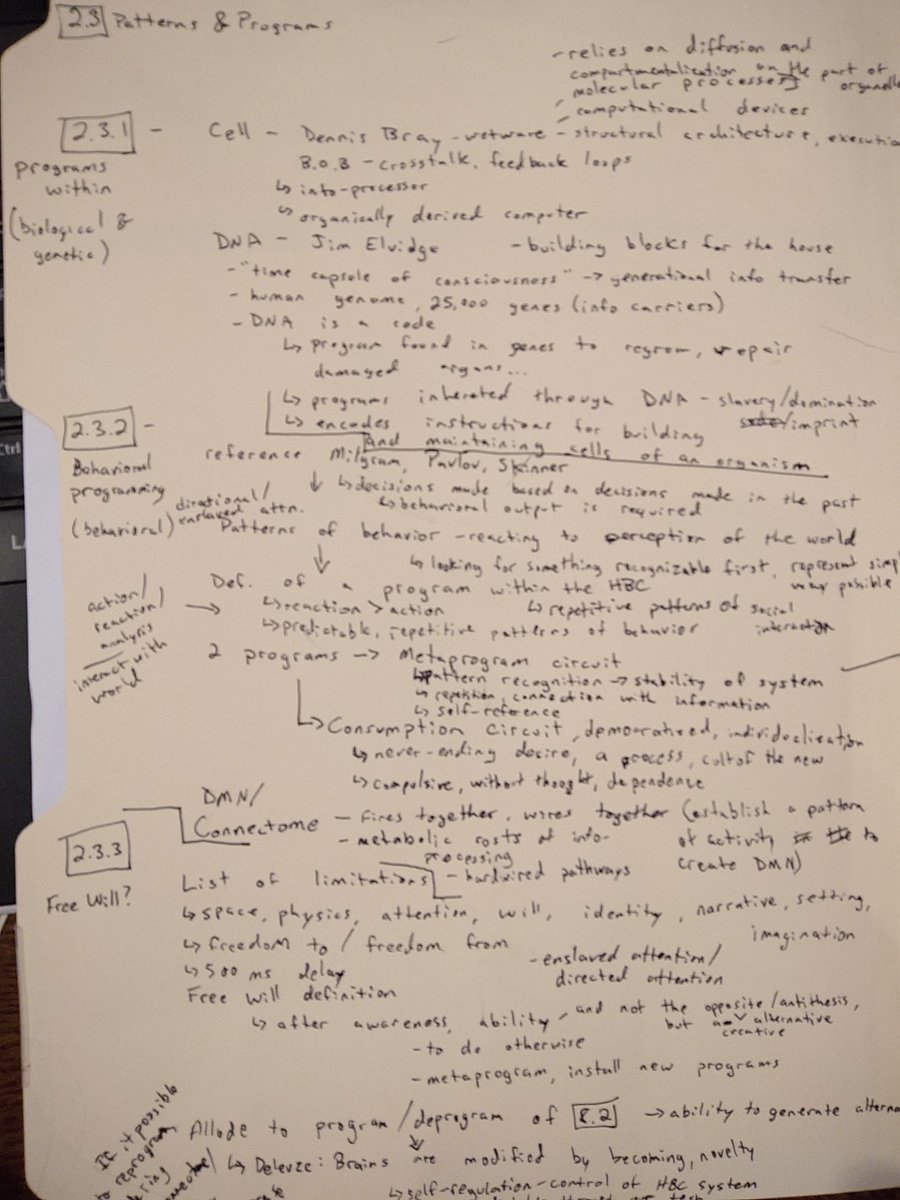 2.3 Patterns & Programs
- relies on diffusion and
compartmentalization on the part of
molecular processes, organelle
computational devices
2.3.1 - Cell - Dennis Bray - wetware - structural architecture, executio
programs within
(biological & genetic)
B.O.B - crosstalk, feedback loops
↳ info-processor
↳ organically derived computer
DNA - Jim Elvidge - building blocks for the house
- "time capsule of consciousness" → generational info transfer
- human genome, 25,000 genes (info carriers)
- DNA is a code
↳ program found in genes to regrow, repair
damaged organs...
↳ programs inhereted through DNA - slavery/domination
imprint
↳ encodes instructions for building
and maintaining cells of an organism
2.3.2 -
Behavioral
programming
(behavioral)
reference Milgram, Pavlov, Skinner
↳ decisions made based on decisions made in the past
↳ behavioral output is required
directional/
enslaved attn.
Patterns of behavior - reacting to perception of the world
↳ looking for something recognizable first, represent simpl
way possible
action/
reaction/
analysis
interact with
world
Def. of a program within the HBC
↳ reaction > action
↳ repetitive patterns of social
interaction
↳ predictable, repetitive patterns of behavior
2 programs → Metaprogram circuit
↳ pattern recognition → stability of system
↳ repetition, connection with information
↳ self-reference
↳ Consumption circuit, democratized, individualization
↳ never-ending desire, a process, cult of the new
↳ compulsive, without thought, dependence
DMN/
Connectome - fires together, wires together (establish a pattern
of activity to
create DMN)
- metabolic costs of info-
processing
- hardwired pathways
2.3.3
Free Will?
List of limitations
↳ space, physics, attention, will, identity, narrative, setting,
imagination
↳ freedom to / freedom from
- enslaved attention/
directed attention
↳ 500 ms delay
Free will definition
↳ after awareness, ability
and not the opposite/antithesis,
but alternative
creative
- to do otherwise
- metaprogram, install new programs
If it possible
to reprogram
Allude to program/deprogram of 8.2 → ability to generate alterna
↳ Deleuze: Brains are modified by becoming, novelty
↳ self-regulation - control of HBC system